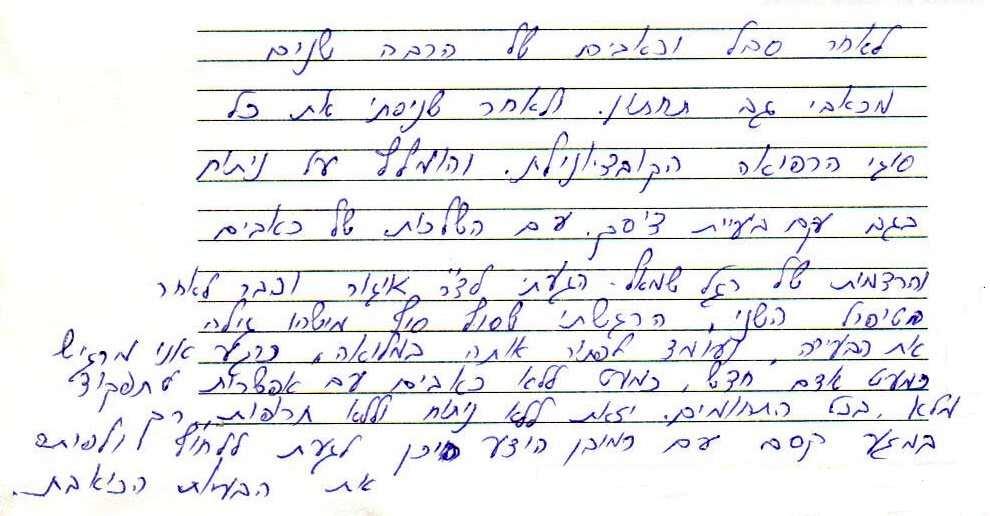 לאחר סבל וכאבים של הרבה שנים
מכאבי גב תחתון. ולאחר שניסתי את כל
סוגי הרפואה הקובנציונלית. והומלץ על ניתוח
בגב עקב בעיית דיסק. עם השלכות של כאבים
והרדמות של רגל שמאל. הגעתי לד"ר איגור וכבר לאחר
הטיפול השני, הרגשתי שסוף סוף מישהו גילה
את הבעייה, ועומד לפתור אותה במלואה, כרגע אני מרגיש
כמעט אדם חדש, כמעט ללא כאבים עם אפשרות לתפקוד
מלא, בכל התחומים. וזאת ללא ניתוח וללא תרופות, רק
במגע קסם עם כמובן הידע היכן לגעת ללחוץ ולפתור
את הבעיות הכואבת.